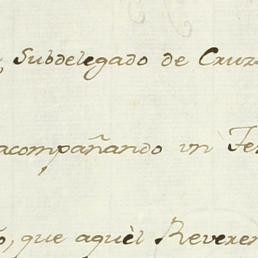 Subdelegado de Cruz
acompañando un Fe
que aquèl Reveren